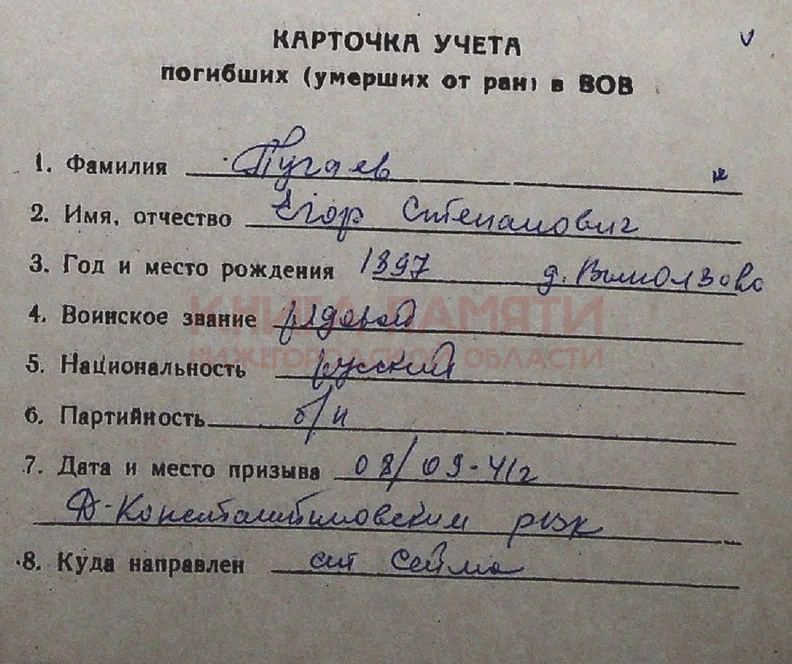 КАРТОЧКА УЧЕТА
погибших (умерших от ран) в ВОВ
1. Фамилия Пугаев
2. Имя, отчество Егор Степанович
3. Год и место рождения 1897 д. Выползово
4. Воинское звание рядовой
КНИГА ПАМЯТИ
5. Национальность русский
НИЖЕГОРОДСКОЙ ОБЛАСТИ
6. Партийность б/п
7. Дата и место призыва 08/09-41г
Д-Константиновским рвк
8. Куда направлен ст Сейма